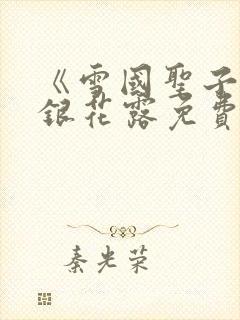 《雪國聖子
銀花露免費
秦光荣